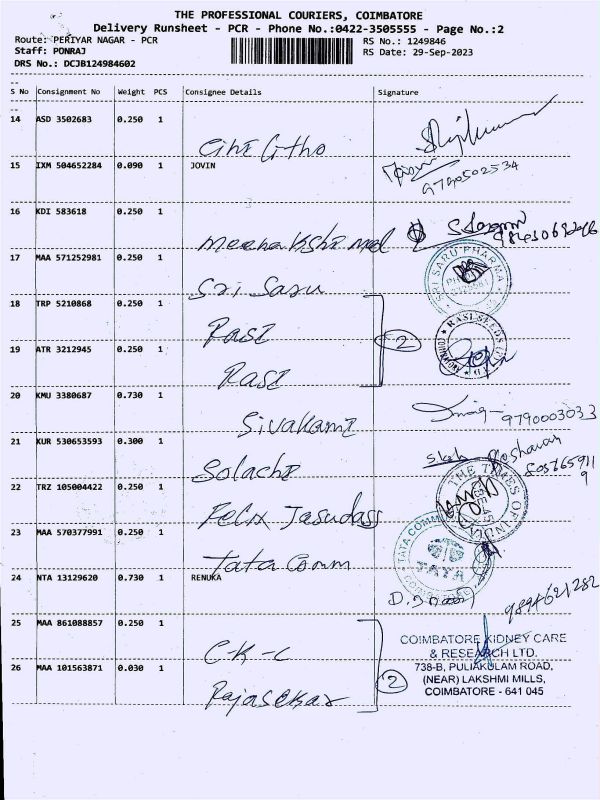 THE PROFESSIONAL COURIERS, COIMBATORE
Delivery Runsheet - PCR - Phone No.:0422-3505555 - Page No.:2
Route: PERIYAR NAGAR - PCR
RS No.: 1249846
Staff: PONRAJ
RS Date: 29-Sep-2023
DRS No.: DCJB124984602
S No Consignment No Weight PCS Consignee Details Signature
14 ASD 3502683 0.250 1
15 IXM 504652284 0.090 1 JOVIN
9790502534
16 KDI 583618 0.250 1
Meenakshi med
17 MAA 571252981 0.250 1
Sri Saru
SRI SARU PHARMA
18 TRP 5210868 0.250 1
Rasi
2
RASI SEEDS (P) LTD
19 ATR 3212945 0.250 1
Rasi
20 KMU 3380687 0.730 1
Sivakami
9790003033
21 KUR 530653593 0.300 1
Solachi
22 TRZ 105004422 0.250 1
Felix Jasudass
THE TIMES OF INDIA
23 MAA 570377991 0.250 1
Tata Comm
TATA COMM
JAYA
24 NTA 13129620 0.730 1 RENUKA
9894621282
25 MAA 861088857 0.250 1
C-K-C
COIMBATORE KIDNEY CARE
& RESEARCH LTD.
738-B, PULIAKULAM ROAD,
(NEAR) LAKSHMI MILLS,
COIMBATORE - 641 045
26 MAA 101563871 0.030 1
Rajasekar
2